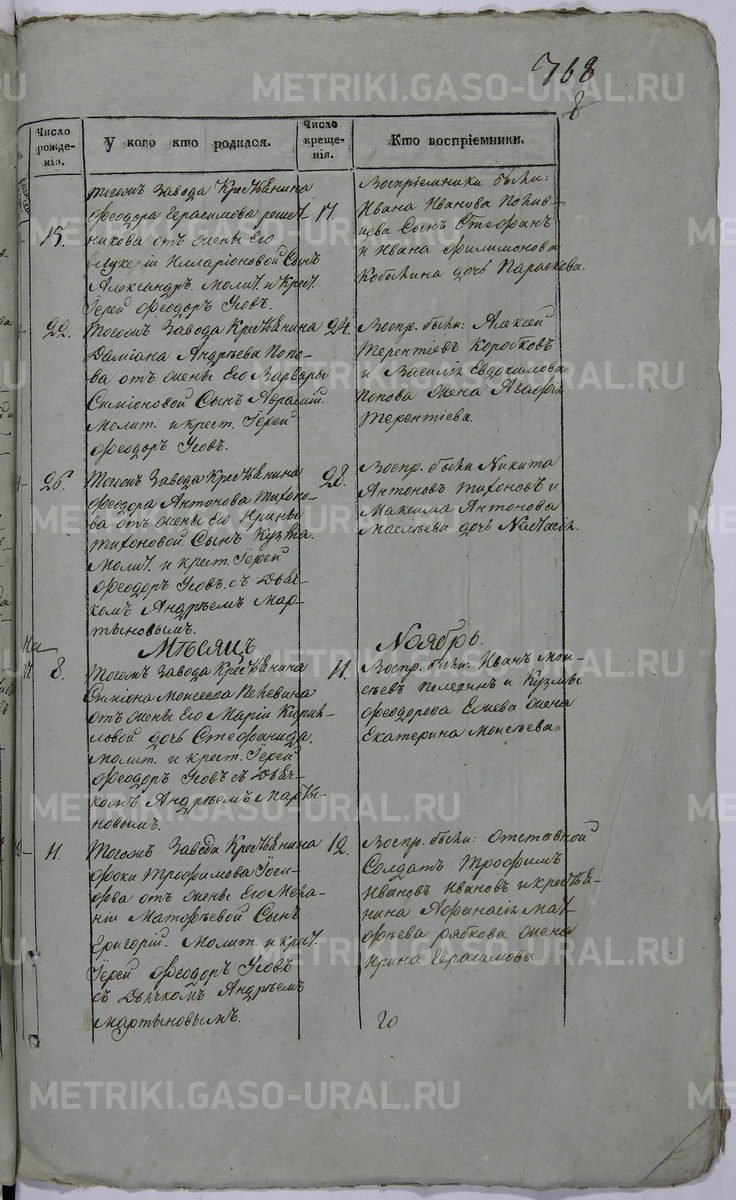 768
8
Число рожде-нія.
У кого кто родился.
Число креще-нія.
Кто воспріемники.
15.
тогожъ Завода Крестьянина
Ѳеодора Герасимова решет-
никова отъ жены Его
Гликеріи Илларіоновой Сынъ
Александръ. Молит. и Крест.
Іерей Ѳеодоръ Усовъ.
17.
Воспріемники были:
Ивана Иванова
Сынъ Стефанъ
и Ивана Филимонова
дочь Параскева.
22.
Тогожъ Завода Крестьянина
Даміана Андрѣева Попо-
ва отъ жены Его Варвары
Симіоновой Сынъ Аврамій.
Молит. и крест. Іерей
Ѳеодоръ Усовъ.
24.
Воспр. были: Алексей
Терентіевъ Коробковъ
и Василія Евдокимова
Попова жена Агафія
Терентіева.
26.
Тогожъ Завода Крестьянина
Ѳеодора Антонова тихоно-
ва отъ жены его Ирины
тихоновой Сынъ Кузма.
Молит. и крест. Іерей
Ѳеодоръ Усовъ. съ Дьяч-
комъ Андрѣемъ Мар-
тыновымъ.
28.
Воспр. были Никита
Антоновъ тихоновъ и
Максима Антонова
дочь Настасія.
Мѣсяцъ
Ноябрь.
8.
Тогожъ Завода Крестьянина
Симіона Моисеева
отъ жены Его Маріи Кирил-
ловой дочь Стефанида.
Молит. и крест. Іерей
Ѳеодоръ Усовъ съ Дьяч-
комъ Андрѣемъ Марты-
новымъ.
11.
Воспр. были: Иванъ Мои-
сѣевъ и Кузмы
Ѳеодорова Ежева жена
Екатерина Моисѣева.
11.
Тогожъ Завода Крестьянина
Фоки Трофимова
отъ жены Его Мела-
ніи Матфѣевой Сынъ
Григорій. Молит. и крест.
Іерей Ѳеодоръ Усовъ
съ Дьячкомъ Андрѣемъ
Мартыновымъ.
12.
Воспр. были: Отставной
Солдатъ Трофимъ
Ивановъ Ивановъ и крестья-
нина Афанасія Мат-
фѣева рябкова жена
Ирина Герасимова
METRIKI.GASO-URAL.RU